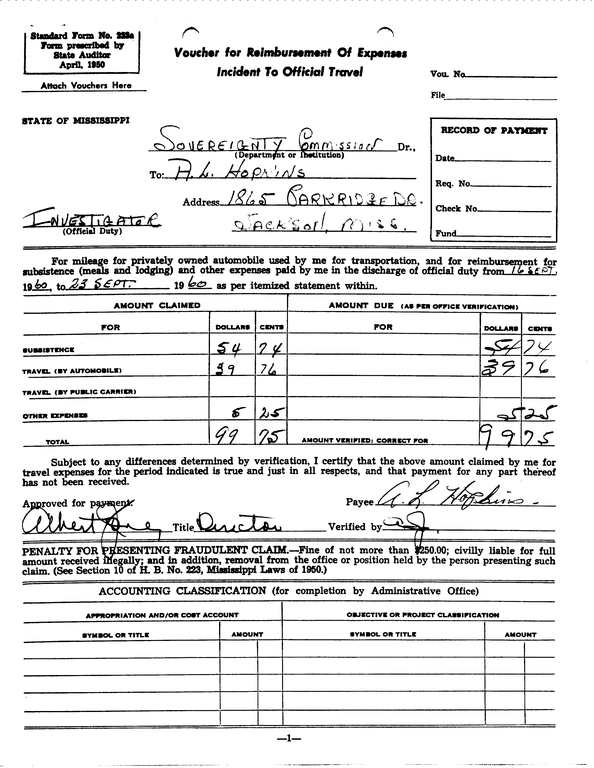 Standard Form No. 223a
Form prescribed by
State Auditor
April, 1950
Attach Vouchers Here
Voucher for Reimbursement Of Expenses
Incident To Official Travel
Vou. No.
File
STATE OF MISSISSIPPI
SOVEREIGNTY COMMISSION Dr.,
(Department or Institution)
To: A. L. HOPKINS
Address 1865 PARKRIDGE DR.
JACKSON, MISS.
INVESTIGATOR
(Official Duty)
RECORD OF PAYMENT
Date
Req. No.
Check No.
Fund
For mileage for privately owned automobile used by me for transportation, and for reimbursement for
subsistence (meals and lodging) and other expenses paid by me in the discharge of official duty from 16 SEPT.
1960, to 23 SEPT. 1960 as per itemized statement within.
AMOUNT CLAIMED AMOUNT DUE (AS PER OFFICE VERIFICATION)
FOR DOLLARS CENTS FOR DOLLARS CENTS
SUBSISTENCE 54 74 54 74
TRAVEL (BY AUTOMOBILE) 39 76 39 76
TRAVEL (BY PUBLIC CARRIER)
OTHER EXPENSES 5 25 5 25
TOTAL 99 75 AMOUNT VERIFIED; CORRECT FOR 99 75
Subject to any differences determined by verification, I certify that the above amount claimed by me for
travel expenses for the period indicated is true and just in all respects, and that payment for any part thereof
has not been received.
Approved for payment: Payee A. L. Hopkins.
Albert Title Director Verified by
PENALTY FOR PRESENTING FRAUDULENT CLAIM.—Fine of not more than $250.00; civilly liable for full
amount received illegally; and in addition, removal from the office or position held by the person presenting such
claim. (See Section 10 of H. B. No. 223, Mississippi Laws of 1950.)
ACCOUNTING CLASSIFICATION (for completion by Administrative Office)
APPROPRIATION AND/OR COST ACCOUNT OBJECTIVE OR PROJECT CLASSIFICATION
SYMBOL OR TITLE AMOUNT SYMBOL OR TITLE AMOUNT
—1—